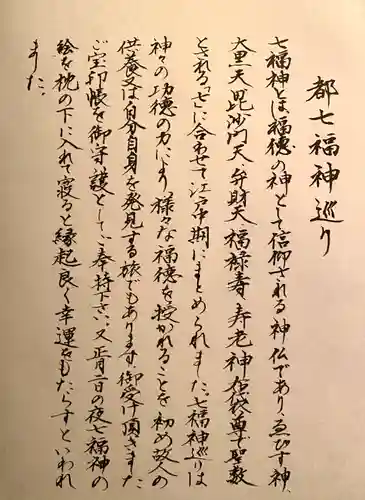 都七福神巡り
七福神とは福徳の神として信仰される神仏であり、ゑびす神、
大黒天、毘沙門天、弁財天、福禄寿、寿老神、布袋尊で聖数
とされる「七」に合わせて江戸中期にまとめられました。七福神巡りは
神々の功徳の力により、様々な福徳を授かれることを初め故人の
供養又は自分自身を発見する旅でもあります。御受け頂きました
ご宝印帳を御守護として、ご奉持下さい。又正月二日の夜七福神の
絵を枕の下に入れて寝ると縁起良く幸運をもたらすといわれ
ました。